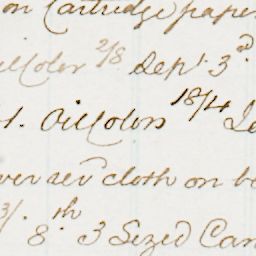 on Cartridge paper
oilColor 2/8 Sept. 3rd
t. OilColors 18/4
over sevl cloth on
3/. 8.th 3 Sized Can